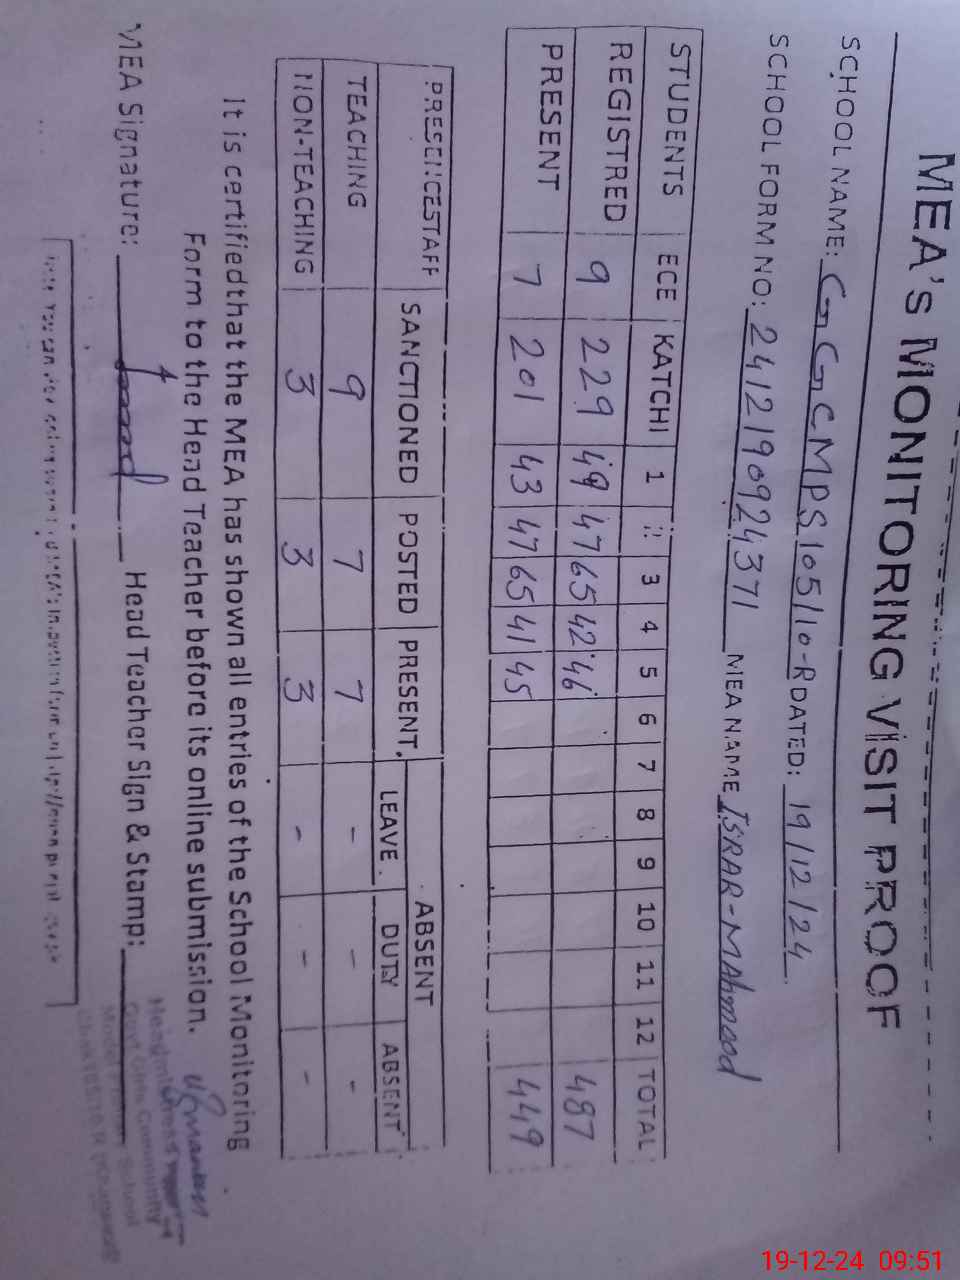 MEA'S MONITORING VISIT PROOF
SCHOOL NAME: GGCMPS 105/10-R DATED: 19/12/24
SCHOOL FORM NO: 2412190924371 MEA NAME ISRAR-MAhmood
STUDENTS ECE KATCHI 1 2 3 4 5 6 7 8 9 10 11 12 TOTAL
REGISTRED 9 229 49 47 65 42 46 487
PRESENT 7 201 43 47 65 41 45 449
PRESENCESTAFF SANCTIONED POSTED PRESENT ABSENT
LEAVE DUTY ABSENT
TEACHING 9 7 7 - - -
NON-TEACHING 3 3 3 - - -
It is certified that the MEA has shown all entries of the School Monitoring
Form to the Head Teacher before its online submission.
MEA Signature: Head Teacher Sign & Stamp:
Headmistress
Govt Girls Community
Model School
19-12-24 09:51